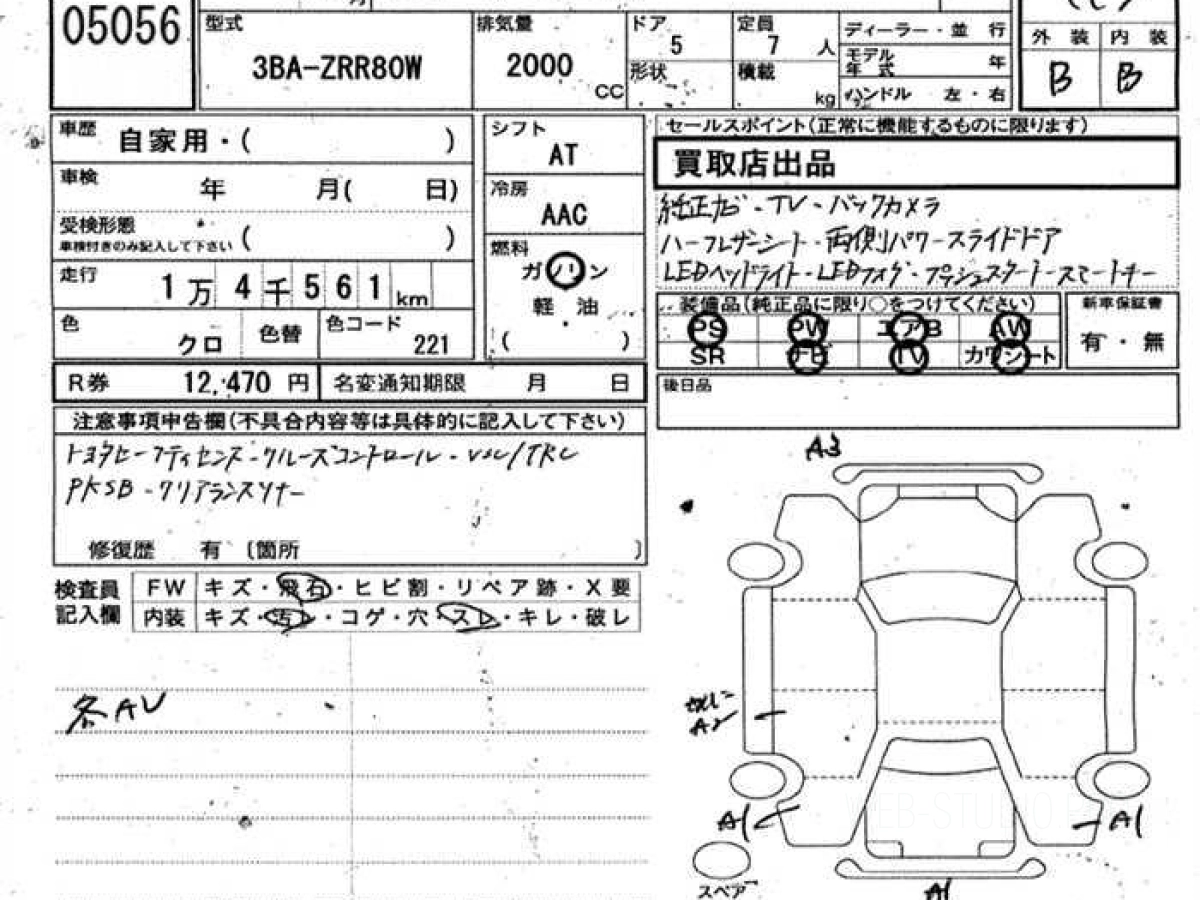 05056
型式
3BA-ZRR80W
排気量
2000
CC
ドア
5
形状
定員
7 人
積載
kg
ディーラー・並 行
モデル年式 年
ハンドル 左・右
外 装 内 装
B B
車歴
自家用・( )
車検
年 月( 日)
受検形態
車検付きのみ記入して下さい ( )
走行
1万4千561km
色
クロ
色替
色コード
221
シフト
AT
冷房
AAC
燃料
ガソリン
軽 油
( )
セールスポイント(正常に機能するものに限ります)
買取店出品
純正ナビ・TV・バックカメラ
ハーフレザーシート・両側パワースライドドア
LEDヘッドライト・LEDフォグ・プッシュスタート・スマートキー
装備品(純正品に限り○をつけてください)
PS PW エアB AW
SR ナビ TV カワシート
新車保証書
有・無
後日品
R券 12,470 円
名変通知期限 月 日
注意事項申告欄(不具合内容等は具体的に記入して下さい)
トヨタセーフティセンス・クルーズコントロール・VSC/TRC
PKSB・クリアランスソナー
修復歴 有 〔箇所 〕
検査員記入欄
FW キズ・飛石・ヒビ割・リペア跡・X要
内装 キズ・汚レ・コゲ・穴・スレ・キレ・破レ
各AU
A3
A2
A1
A1
スペアー
A1
WEB-STUDIO